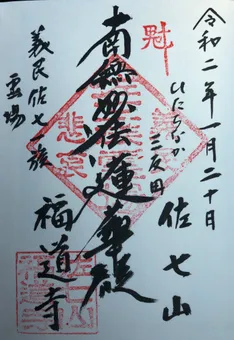 令和二年一月二十日
佐七山
ひたちなか
三反田
南無妙法蓮華経
義民佐七一族
霊場
福道寺